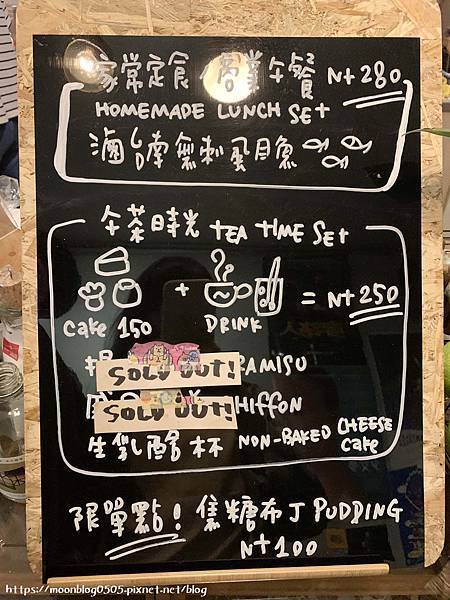 家常定食 NT 280
HOMEMADE LUNCH SET
滷 無刺虱目魚
午茶時光 TEA TIME SET
+ = NT 250
Cake 150 DRINK
SOLD OUT! RAMISU
SOLD OUT! HIFFON
生乳酪杯 NON-BAKED CHEESE Cake
限單點! 焦糖布丁 PUDDING
NT 100
https://moonblog0505.pixnet.net/blog